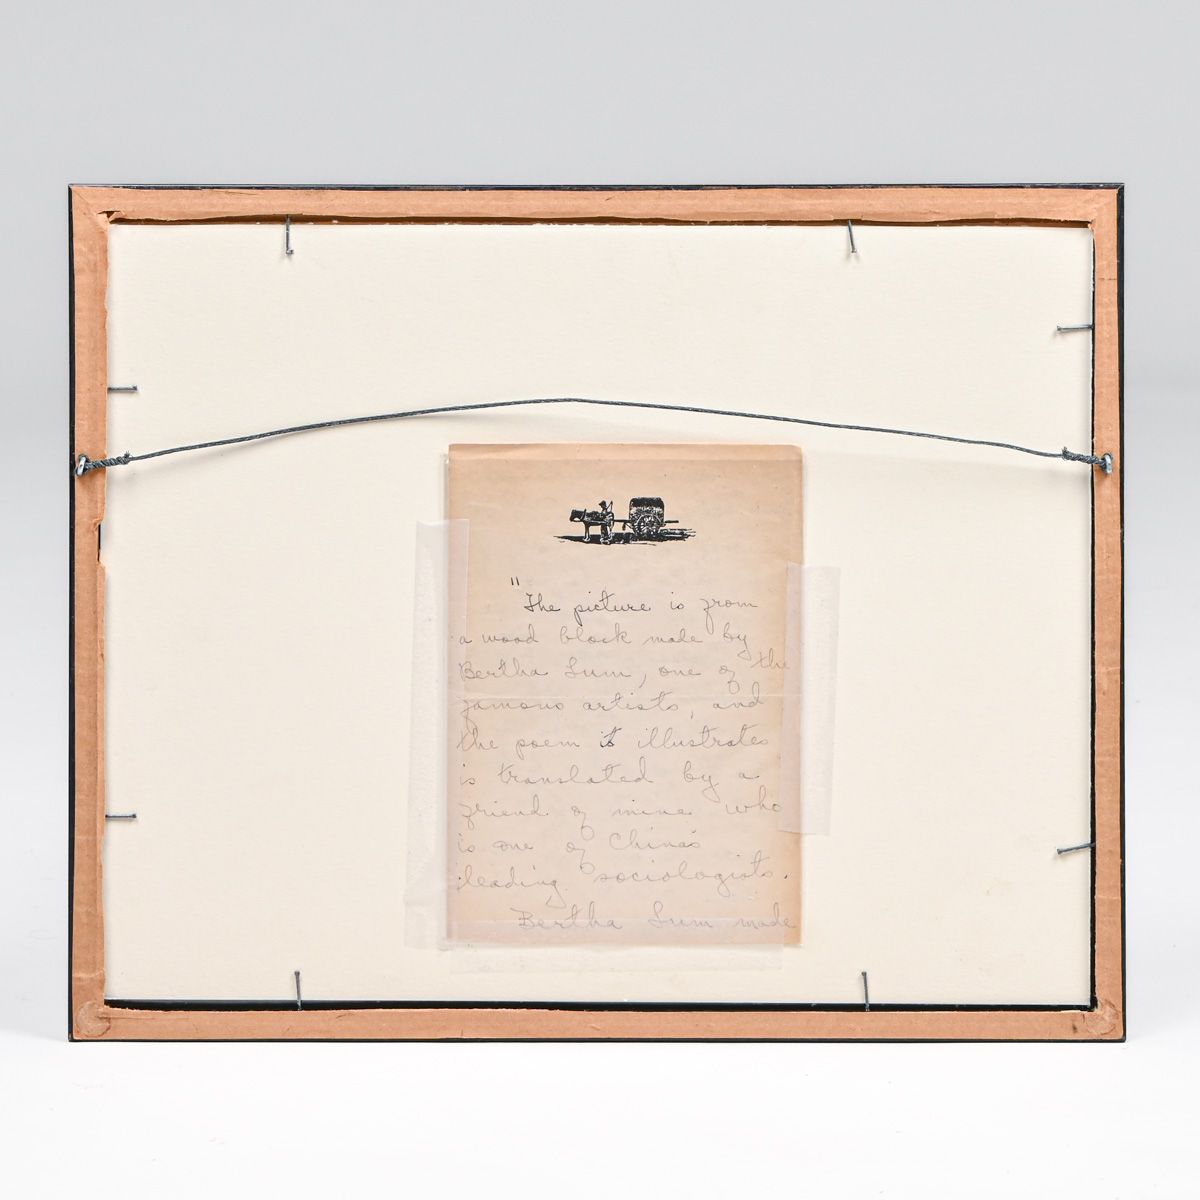 "The picture is from
a wood block made by
Bertha Lum, one of the
famous artists, and
the poem it illustrates
is translated by a
friend of mine who
is one of China's
leading sociologists.
Bertha Lum made